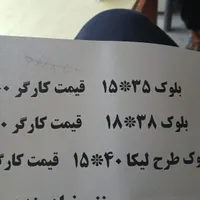 بلوک ۳۵*۱۵ قیمت کارگر
بلوک ۳۸*۱۸ قیمت کارگر
طرح لیکا ۴۰*۱۵ قیمت